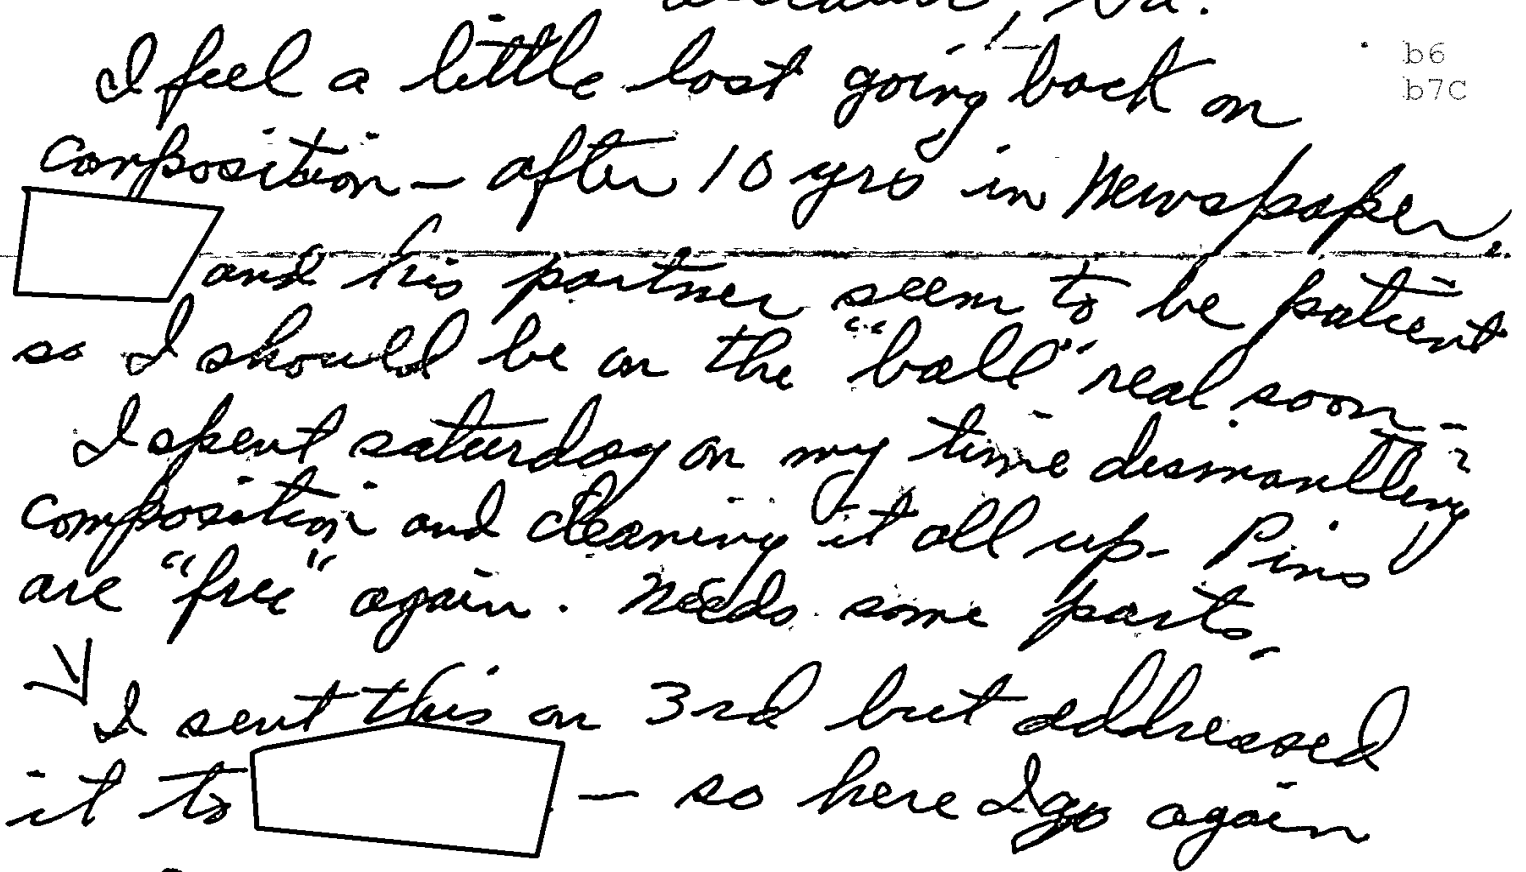 I feel a little lost going back on
b6
b7C
composition – after 10 yrs in Newspaper.
and his partner seem to be patient
so I should be on the "ball" real soon –
I spent saturday on my time dismantling
composition and cleaning it all up – Pins
are "free" again. Needs some parts.
I sent this on 3rd but addressed
it to — so here I go again